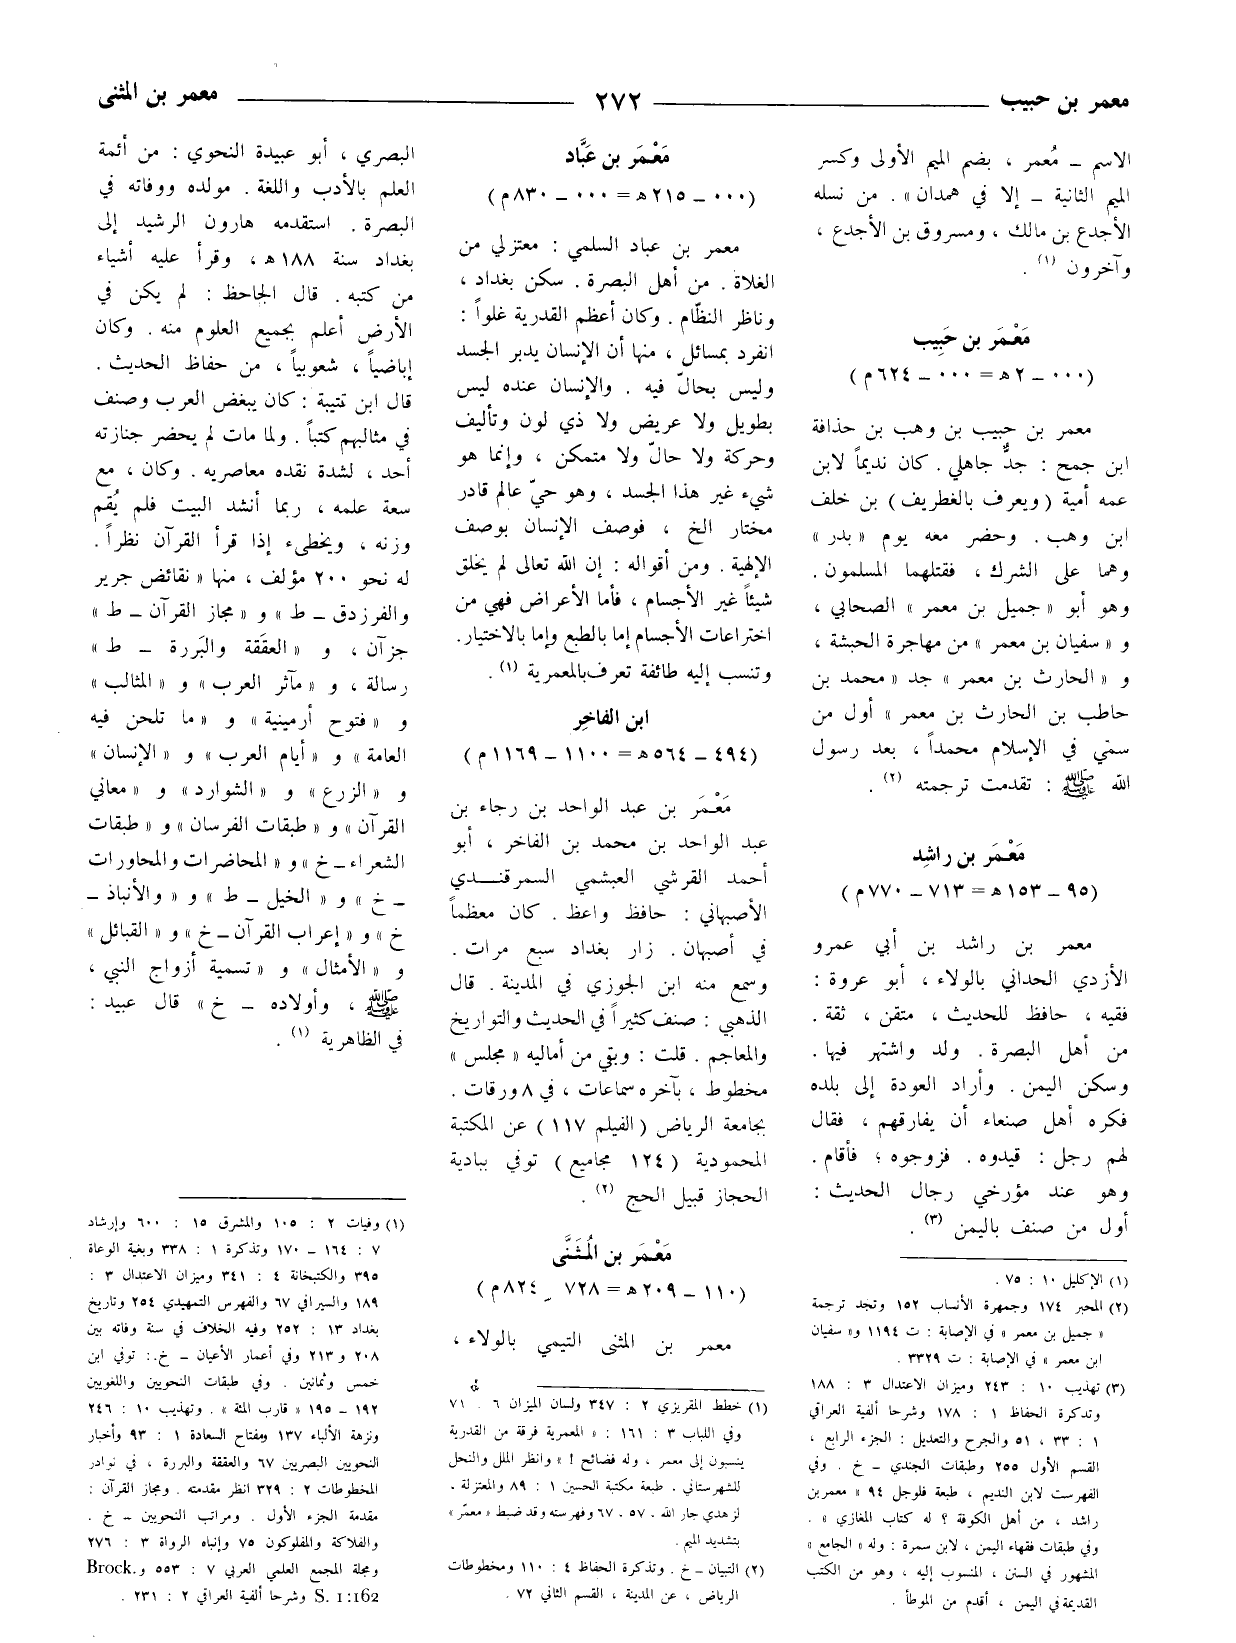 معمر بن حبيب ــــــ ٢٧٢ ــــــ معمر بن المثنى
الاسم ــ مُعمر ، بضم الميم الأولى وكسر
الميم الثانية ــ إلا في همدان » . من نسله
الأجدع بن مالك ، ومسروق بن الأجدع ،
وآخرون (١) .
مَعْمَر بن حَبِيب
(٠٠٠ ــ ٢ ه = ٠٠٠ ــ ٦٢٤ م )
معمر بن حبيب بن وهب بن حذافة
ابن جمح : جدٌّ جاهلي . كان نديماً لابن
عمه أمية ( ويعرف بالغطريف ) بن خلف
ابن وهب . وحضر معه يوم « بدر »
وهما على الشرك ، فقتلهما المسلمون .
وهو أبو « جميل بن معمر » الصحابي ،
و « سفيان بن معمر » من مهاجرة الحبشة ،
و « الحارث بن معمر » جد « محمد بن
حاطب بن الحارث بن معمر » أول من
سمّي في الإسلام محمداً ، بعد رسول
الله ﷺ : تقدمت ترجمته (٢) .
مَعْمَر بن راشِد
(٩٥ ــ ١٥٣ ه = ٧١٣ ــ ٧٧٠ م )
معمر بن راشد بن أبي عمرو
الأزدي الحداني بالولاء ، أبو عروة :
فقيه ، حافظ للحديث ، متقن ، ثقة .
من أهل البصرة . ولد واشتهر فيها .
وسكن اليمن . وأراد العودة إلى بلده
فكره أهل صنعاء أن يفارقهم ، فقال
لهم رجل : قيدوه . فزوجوه ؛ فأقام .
وهو عند مؤرخي رجال الحديث :
أول من صنف باليمن (٣) .
(١) الإكليل ١٠ : ٧٥ .
(٢) المحبر ١٧٤ وجمهرة الأنساب ١٥٢ وتجد ترجمة
« جميل بن معمر » في الإصابة : ت ١١٩٤ و« سفيان
ابن معمر » في الإصابة : ت ٣٣٢٩ .
(٣) تهذيب ١٠ : ٢٤٣ وميزان الاعتدال ٣ : ١٨٨
وتذكرة الحفاظ ١ : ١٧٨ وشرحا ألفية العراقي
١ : ٣٣ ، ٥١ والجرح والتعديل : الجزء الرابع ،
القسم الأول ٢٥٥ وطبقات الجندي ــ خ . وفي
الفهرست لابن النديم ، طبعة فلوجل ٩٤ « معمر بن
راشد ، من أهل الكوفة ؟ له كتاب المغازي » .
وفي طبقات فقهاء اليمن ، لابن سمرة : وله « الجامع »
المشهور في السنن ، المنسوب إليه ، وهو من الكتب
القديمة في اليمن ، أقدم من الموطأ .
مَعْمَر بن عَبَّاد
(٠٠٠ ــ ٢١٥ ه = ٠٠٠ ــ ٨٣٠ م )
معمر بن عباد السلمي : معتزلي من
الغلاة . من أهل البصرة . سكن بغداد ،
وناظر النظّام . وكان أعظم القدرية غلواً :
انفرد بمسائل ، منها أن الإنسان يدبر الجسد
وليس بحالّ فيه . والإنسان عنده ليس
بطويل ولا عريض ولا ذي لون وتأليف
وحركة ولا حالّ ولا متمكن ، وإنما هو
شيء غير هذا الجسد ، وهو حيّ عالم قادر
مختار الخ ، فوصف الإنسان بوصف
الإلهية . ومن أقواله : إن الله تعالى لم يخلق
شيئاً غير الأجسام ، فأما الأعراض فهي من
اختراعات الأجسام إما بالطبع وإما بالاختيار .
وتنسب إليه طائفة تعرف بالمعمرية (١) .
ابن الفاخِر
(٤٩٤ ــ ٥٦٤ ه = ١١٠٠ ــ ١١٦٩ م )
مَعْمَر بن عبد الواحد بن رجاء بن
عبد الواحد بن محمد بن الفاخر ، أبو
أحمد القرشي العبشمي السمرقنـــدي
الأصبهاني : حافظ واعظ . كان معظماً
في أصبهان . زار بغداد سبع مرات .
وسمع منه ابن الجوزي في المدينة . قال
الذهبي : صنف كثيراً في الحديث والتواريخ
والمعاجم . قلت : وبقي من أماليه « مجلس »
مخطوط ، بآخره سماعات ، في ٨ ورقات .
بجامعة الرياض ( الفيلم ١١٧ ) عن المكتبة
المحمودية ( ١٢٤ مجاميع ) توفي ببادية
الحجاز قبيل الحج (٢) .
مَعْمَر بن المُثَنَّى
(١١٠ ــ ٢٠٩ ه = ٧٢٨ ــ ٨٢٤ م )
معمر بن المثنى التيمي بالولاء ،
(١) خطط المقريزي ٢ : ٣٤٧ ولسان الميزان ٦ . ٧١
وفي اللباب ٣ : ١٦١ : « المعمرية فرقة من القدرية
ينسبون إلى معمر ، وله فضائح ! » وانظر الملل والنحل
للشهرستاني . طبعة مكتبة الحسين ١ : ٨٩ والمعتزلة ،
لزهدي جار الله . ٥٧ ، ٦٧ وفهرسته وقد ضبط « معمّر »
بتشديد الميم .
(٢) التبيان ــ خ . وتذكرة الحفاظ ٤ : ١١٠ ومخطوطات
الرياض ، عن المدينة ، القسم الثاني ٧٢ .
البصري ، أبو عبيدة النحوي : من أئمة
العلم بالأدب واللغة . مولده ووفاته في
البصرة . استقدمه هارون الرشيد إلى
بغداد سنة ١٨٨ ه ، وقرأ عليه أشياء
من كتبه . قال الجاحظ : لم يكن في
الأرض أعلم بجميع العلوم منه . وكان
إباضياً ، شعوبياً ، من حفاظ الحديث .
قال ابن قتيبة : كان يبغض العرب وصنف
في مثالبهم كتباً . ولما مات لم يحضر جنازته
أحد ، لشدة نقده معاصريه . وكان ، مع
سعة علمه ، ربما أنشد البيت فلم يُقم
وزنه ، ويخطىء إذا قرأ القرآن نظراً .
له نحو ٢٠٠ مؤلف ، منها « نقائض جرير
والفرزدق ــ ط » و « مجاز القرآن ــ ط »
جزآن ، و « العقَقة والبَررة ــ ط »
رسالة ، و « مآثر العرب » و « المثالب »
و « فتوح أرمينية » و « ما تلحن فيه
العامة » و « أيام العرب » و « الإنسان »
و « الزرع » و « الشوارد » و « معاني
القرآن » و « طبقات الفرسان » و « طبقات
الشعراء ــ خ » و « المحاضرات والمحاورات
ــ خ » و « الخيل ــ ط » و « والأنباذ ــ
خ » و « إعراب القرآن ــ خ » و « القبائل »
و « الأمثال » و « تسمية أزواج النبي ،
ﷺ ، وأولاده ــ خ » قال عبيد :
في الظاهرية (١) .
(١) وفيات ٢ : ١٠٥ والمشرق ١٥ : ٦٠٠ وإرشاد
٧ : ١٦٤ ــ ١٧٠ وتذكرة ١ : ٣٣٨ وبغية الوعاة
٣٩٥ والكتبخانة ٤ : ٣٤١ وميزان الاعتدال ٣ :
١٨٩ والسيرافي ٦٧ والفهرس التمهيدي ٢٥٤ وتاريخ
بغداد ١٣ : ٢٥٢ وفيه الخلاف في سنة وفاته بين
٢٠٨ و ٢١٣ وفي أعمار الأعيان ــ خ .: توفي ابن
خمس وثمانين . وفي طبقات النحويين واللغويين
١٩٢ ــ ١٩٥ « قارب المئة » . وتهذيب ١٠ : ٢٤٦
ونزهة الألباء ١٣٧ ومفتاح السعادة ١ : ٩٣ وأخبار
النحويين البصريين ٦٧ والعققة والبررة ، في نوادر
المخطوطات ٢ : ٣٢٩ انظر مقدمته . ومجاز القرآن :
مقدمة الجزء الأول . ومراتب النحويين ــ خ .
والفلاكة والمفلوكون ٧٥ وإنباه الرواة ٣ : ٢٧٦
ومجلة المجمع العلمي العربي ٧ : ٥٥٣ و Brock.
S. 1:162 وشرحا ألفية العراقي ٢ : ٢٣١ .